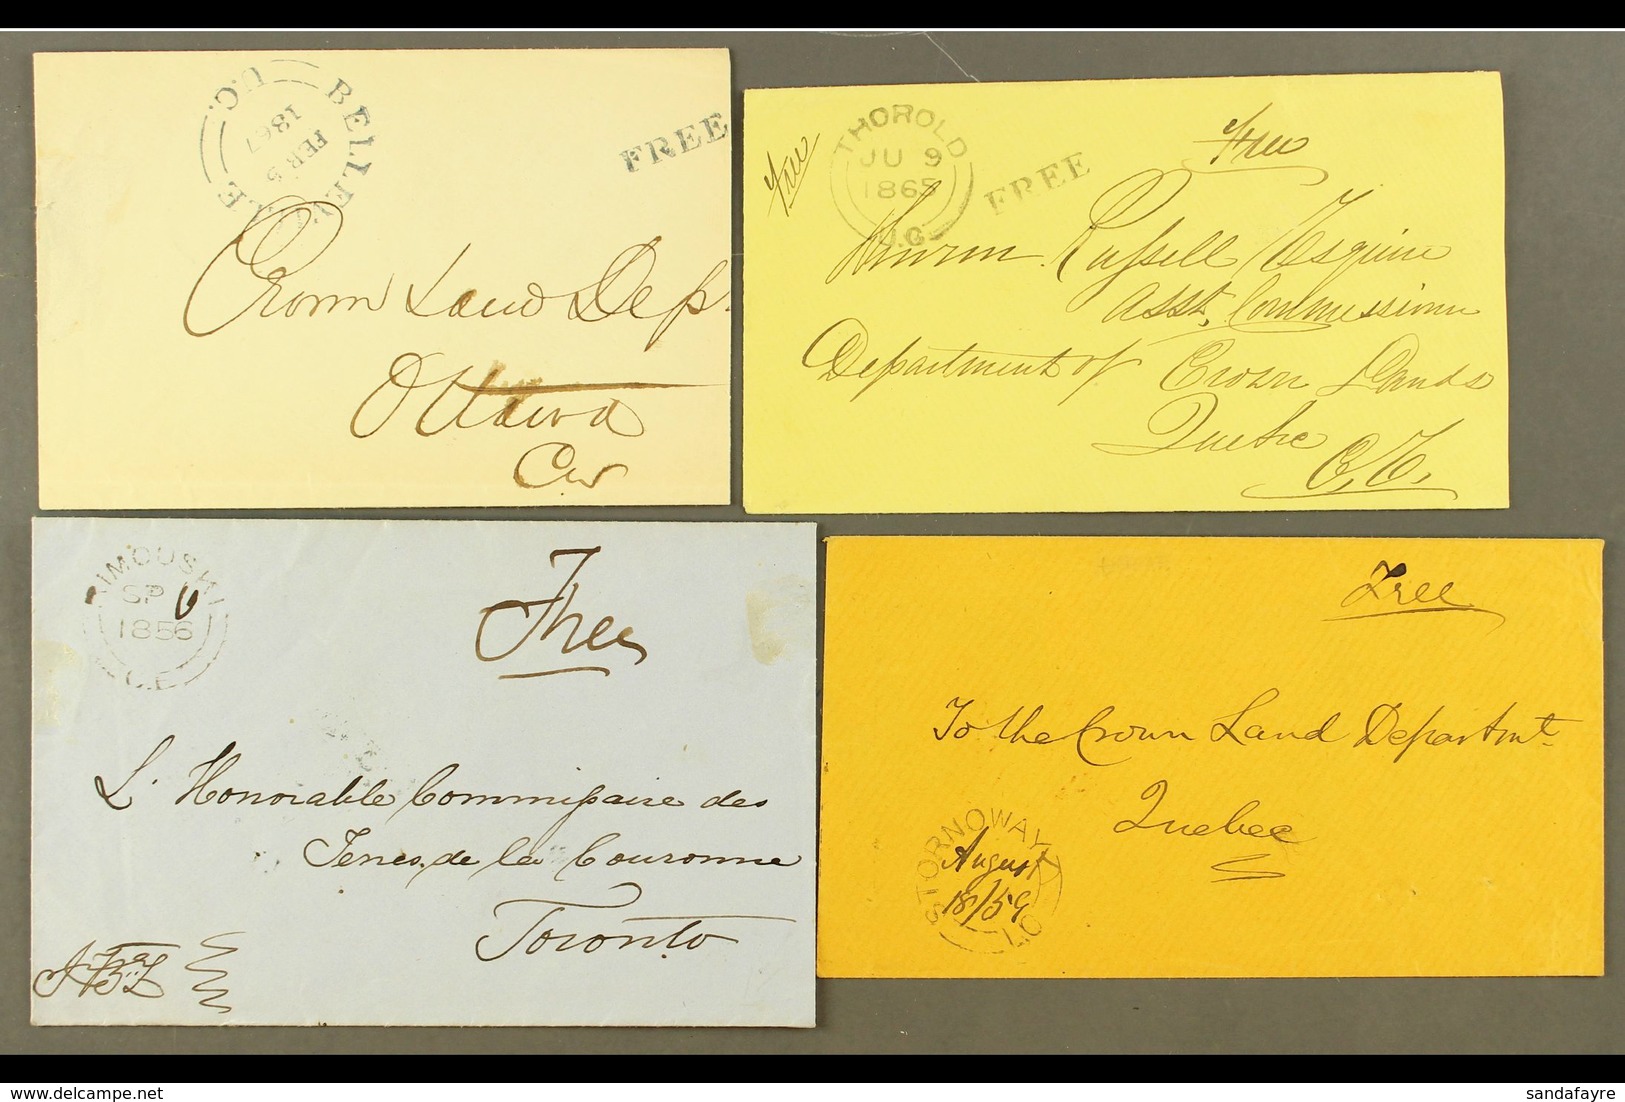 BELLEVILLE
FEB 5
1867
U.C.
FREE
Crown Land Dep.
Ottawa
CW
Free
THOROLD
JU 9
1865
U.C.
FREE
Free
Russell Esquire
Asst. Commissioner
Department of Crown Lands
Quebec
C.E.
RIMOUSKI
SP 6
1856
C.E.
Free
L'Honorable Commissaire des
Terres de la Couronne
Toronto
Free
To the Crown Land Departmt
Quebec
STORNOWAY
August
18/59
L.C
sandafayre